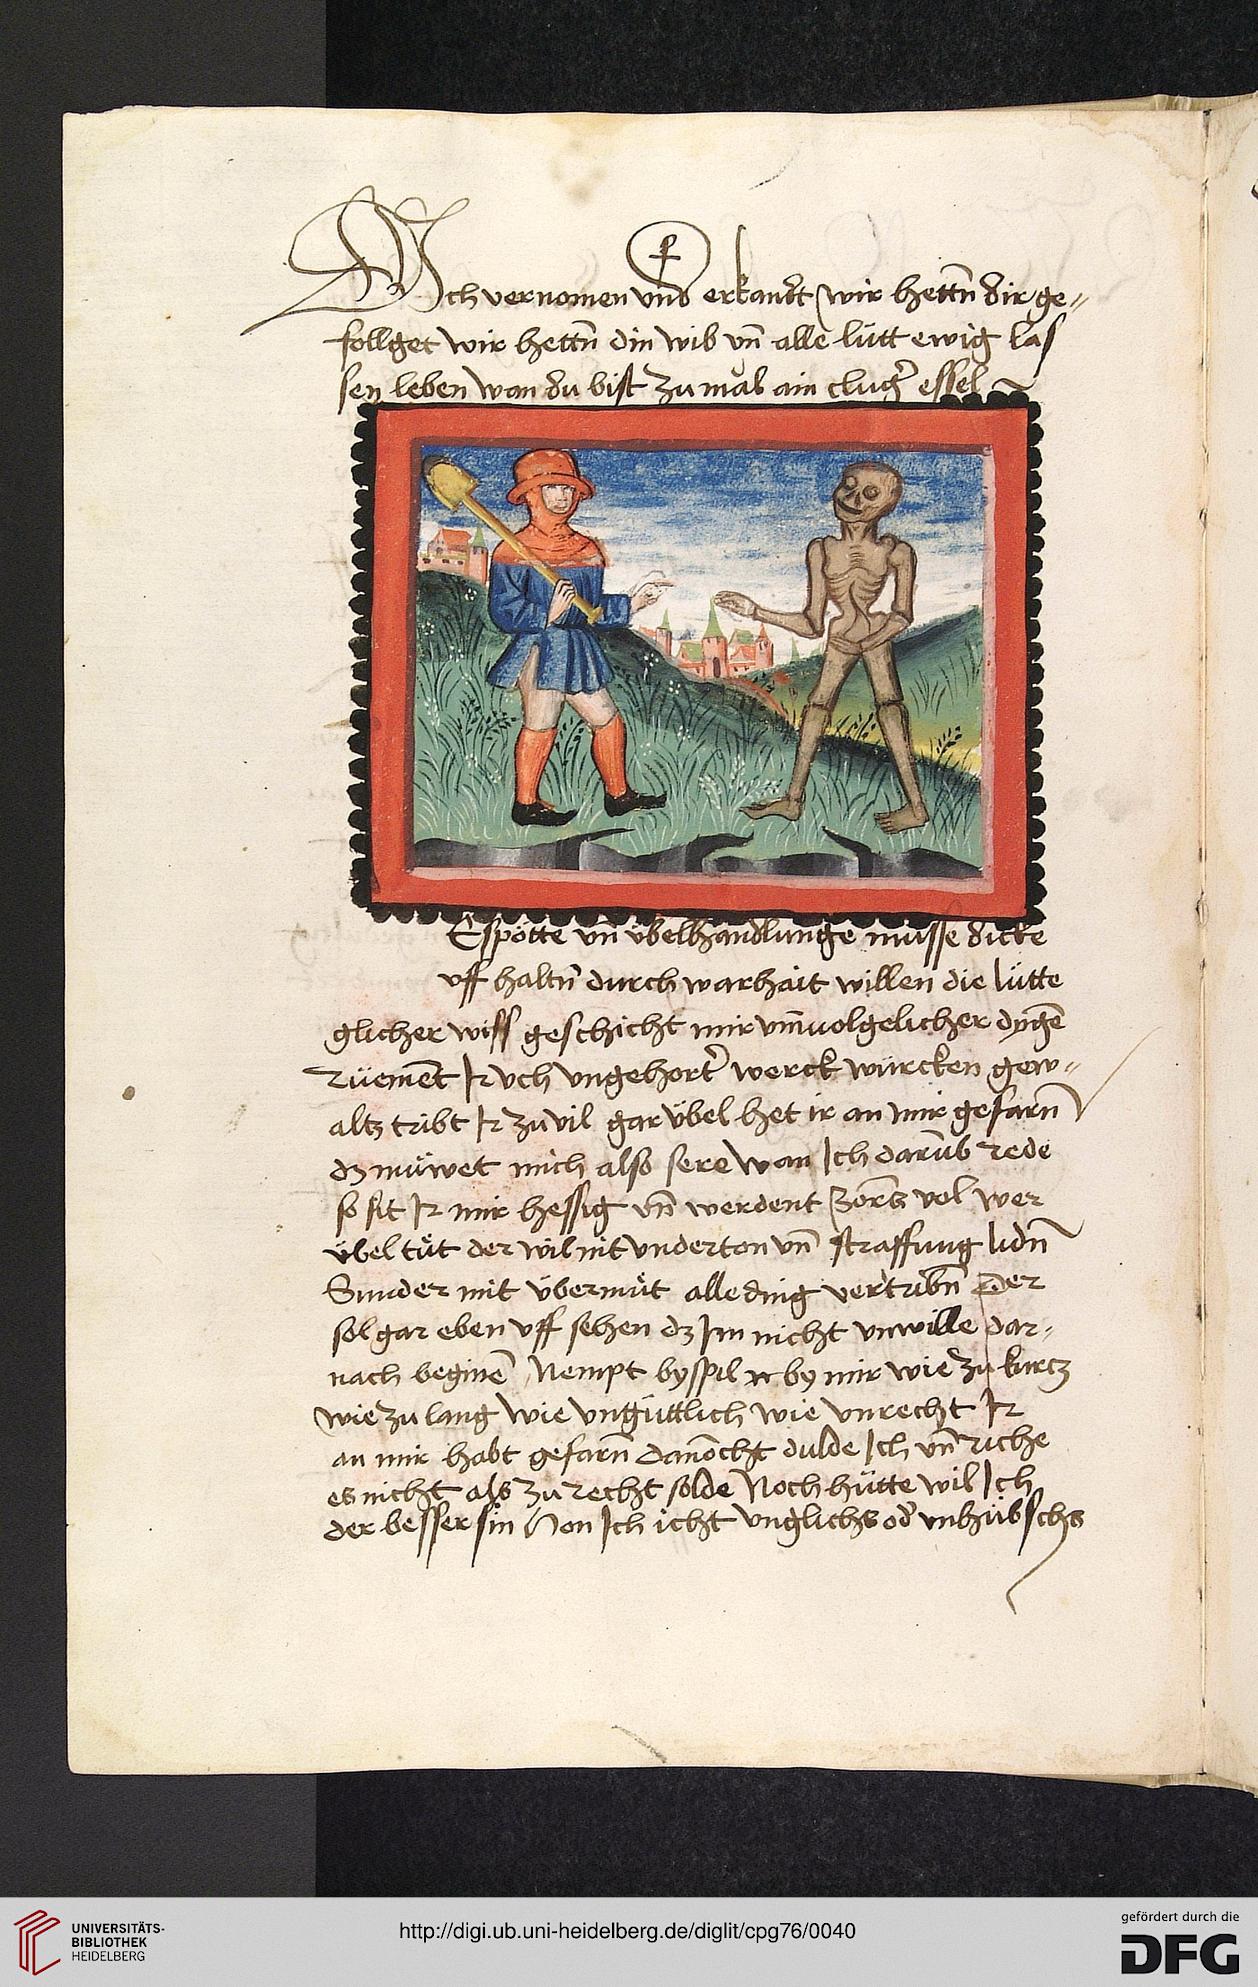 Ach vernomen vnd erkandt wir hettn̄ dir ge„
follget wir hettn̄ din wib vn̄ alle lütt ewig las
sen leben wan du bist zumal ain clug͛ essel
Espötte vn̄ übelhandlunge müsse dicke
vff haltn̄ durch warhait willen die lütte
glicher wiss geschicht mir vm̄uolgelicher dÿgē
rüemēt Ir vch vngehort͛ werck würcken gew„
altz tribt Ir zuuil gar übel het ir an mir gefarn̄
dz müwet mich also sere wan Ich darūb rede
so sit Ir mir hessig vn̄ werdent Zorns vol wer
übel tüt der wil nit vnderton vn̄ straffung lidn̄
Sunder mit übermüt alle ding vertribn̄ Der
sol gar eben vff sehen dz Im nicht vnwille dar„
nach beginē Nempt byspil by mir wie zu kurcz
wie zu lang wie vngüttlich wie vnrecht Ir
an mir habt gefarn̄ danōcht dulde Ich vn̄ riche
es nicht als zu recht solde Noch hütte wil Ich
der besser sin Hon Ich icht vnglichs od͛ vnhübschs
UNIVERSITÄTS-
BIBLIOTHEK
HEIDELBERG
http://digi.ub.uni-heidelberg.de/diglit/cpg76/0040
gefördert durch die
DFG